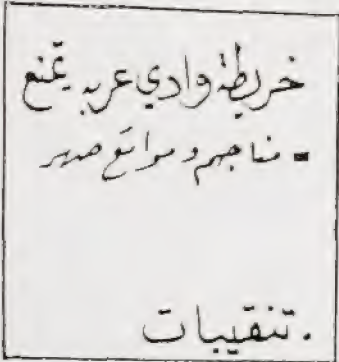 خريطة وادي عربه يتمنع
▪ مناجم ومواقع صهر
. تنقيبات